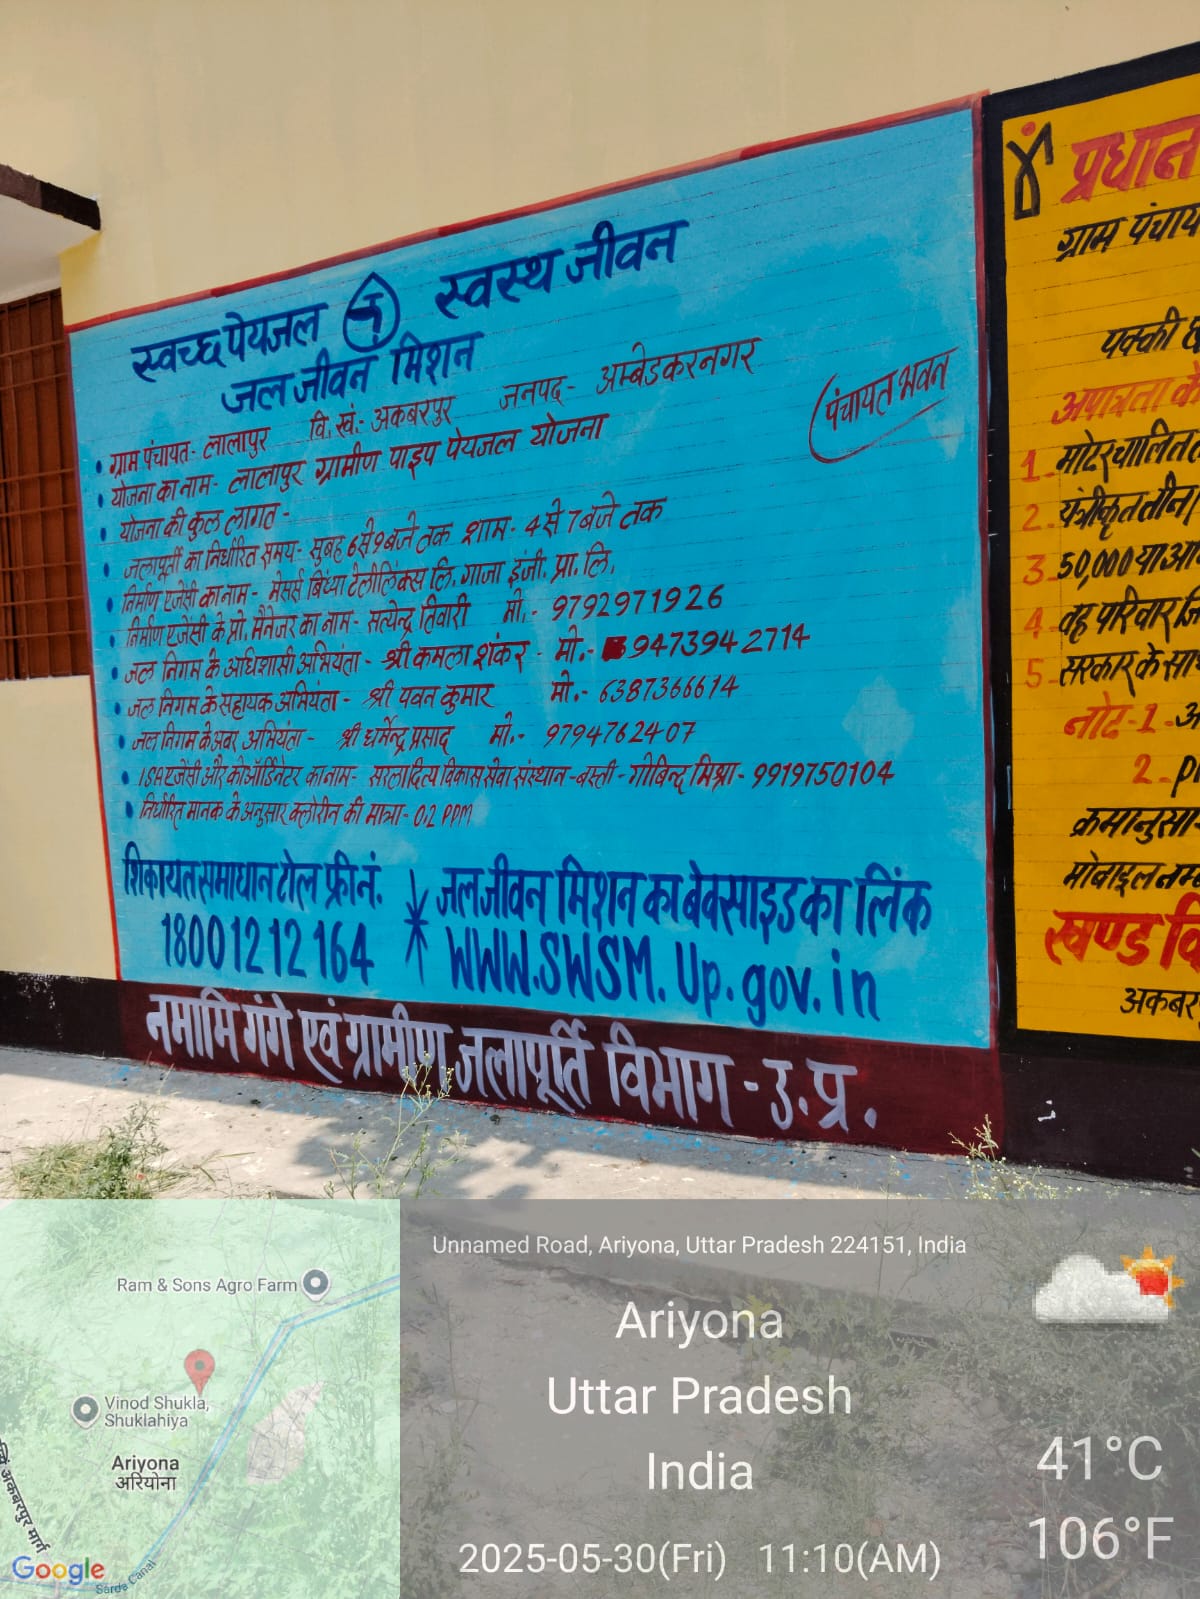 स्वच्छ पेयजल स्वस्थ जीवन
जल जीवन मिशन
ग्राम पंचायत- लालापुर वि. खं.- अकबरपुर जनपद- अम्बेडकरनगर
पंचायत भवन
योजना का नाम- लालापुर ग्रामीण पाइप पेयजल योजना
योजना की कुल लागत -
जलापूर्ती का निर्धारित समय- सुबह 6 से 9 बजे तक शाम- 4 से 7 बजे तक
निर्माण एजेंसी का नाम- मेसर्स बिंध्या टेलीलिंक्स लि. गाजा इंजी. प्रा. लि.
निर्माण एजेंसी के प्रो. मैनेजर का नाम- सत्येन्द्र तिवारी मो.- 9792971926
जल निगम के अधिशासी अभियंता - श्री कमला शंकर - मो.- 9473942714
जल निगम के सहायक अभियंता - श्री पवन कुमार मो.- 6387366614
जल निगम के अवर अभियंता- श्री धर्मेन्द्र प्रसाद मो.- 9794762407
ISA एजेंसी और कोऑर्डिनेटर का नाम- सरलादित्य विकास सेवा संस्थान - बस्ती - गोबिन्द मिश्रा - 9919750104
निर्धारित मानक के अनुसार क्लोरीन की मात्रा - 0.2 PPM
शिकायत समाधान टोल फ्री नं.
1800 12 12 164
जल जीवन मिशन का बेवसाइड का लिंक
WWW.SWSM.Up.gov.in
नमामि गंगे एवं ग्रामीण जलापूर्ति विभाग - उ.प्र.
प्रधान
ग्राम पंचाय
पक्की
अपात्रता के
1. मोटर चालित
2. यंत्रीकृत तीन
3. 50,000 या
4. वह परिवार
5. सरकार के साथ
नोट-1.
2.
क्रमानुसा
मोबाइल नम्ब
खण्ड वि
अकबर
Ram & Sons Agro Farm
Vinod Shukla,
Shuklahiya
Ariyona
अरियोना
अकबरपुर मार्ग
Sarda Canal
Google
Unnamed Road, Ariyona, Uttar Pradesh 224151, India
Ariyona
Uttar Pradesh
India
2025-05-30(Fri) 11:10(AM)
41°C
106°F